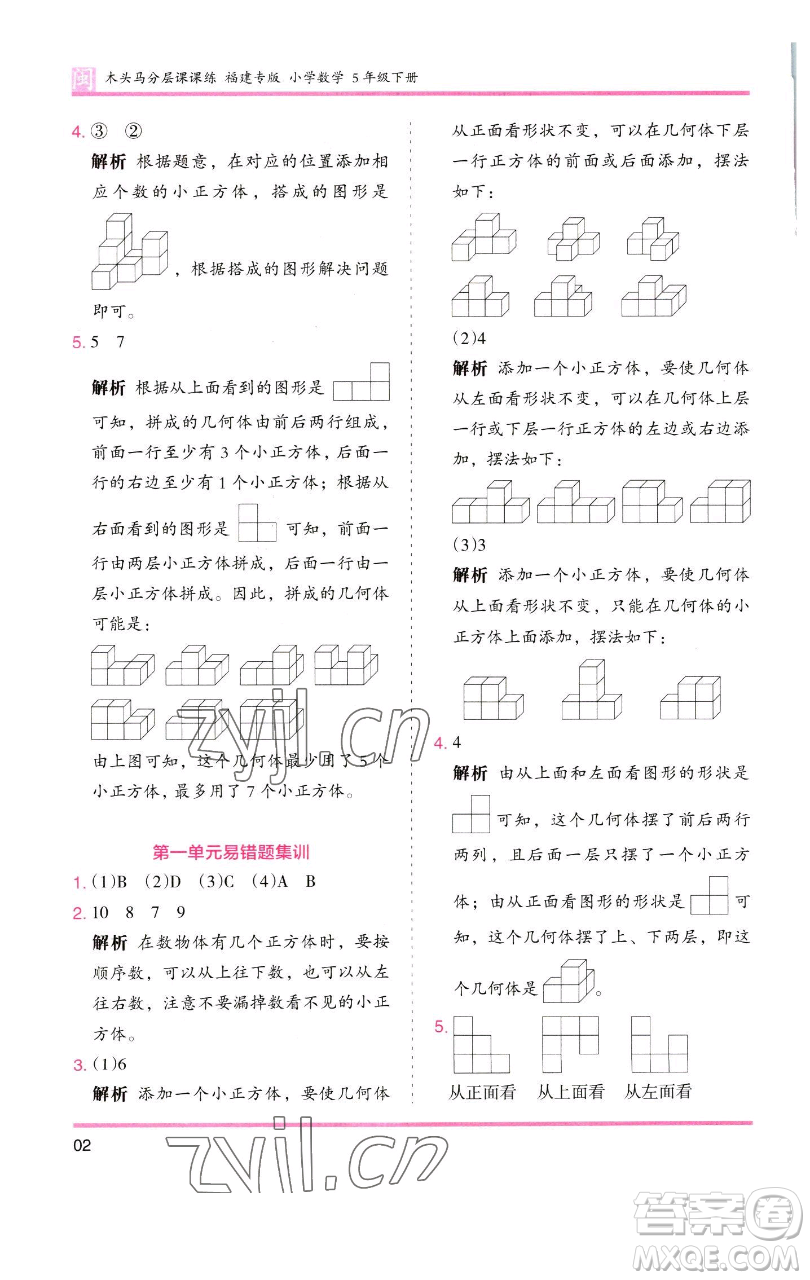 闽 木头马分层课课练 福建专版 小学数学 5年级下册
4. ③ ②
解析 根据题意，在对应的位置添加相
应个数的小正方体，搭成的图形是
，根据搭成的图形解决问题
即可。
5. 5 7
解析 根据从上面看到的图形是
可知，拼成的几何体由前后两行组成，
前面一行至少有3个小正方体，后面一
行的右边至少有1个小正方体；根据从
右面看到的图形是 可知，前面一
行由两层小正方体拼成，后面一行由一
层小正方体拼成。因此，拼成的几何体
可能是：
由上图可知，这个几何体最少用了5个
小正方体，最多用了7个小正方体。
第一单元易错题集训
1. (1)B (2)D (3)C (4)A B
2. 10 8 7 9
解析 在数物体有几个正方体时，要按
顺序数，可以从上往下数，也可以从左
往右数，注意不要漏掉数看不见的小正
方体。
3. (1)6
解析 添加一个小正方体，要使几何体
从正面看形状不变，可以在几何体下层
一行正方体的前面或后面添加，摆法
如下：
(2)4
解析 添加一个小正方体，要使几何体
从左面看形状不变，可以在几何体上层
一行或下层一行正方体的左边或右边添
加，摆法如下：
(3)3
解析 添加一个小正方体，要使几何体
从上面看形状不变，只能在几何体的小
正方体上面添加，摆法如下：
4. 4
解析 由从上面和左面看图形的形状是
可知，这个几何体摆了前后两行
两列，且后面一层只有一个小正方
体；由从正面看图形的形状是 可
知，这个几何体摆了上、下两层，即这
个几何体是 。
5.
从正面看 从上面看 从左面看
02
zyjl.cn
zyjl.cn
答案圈
MXQE.COM